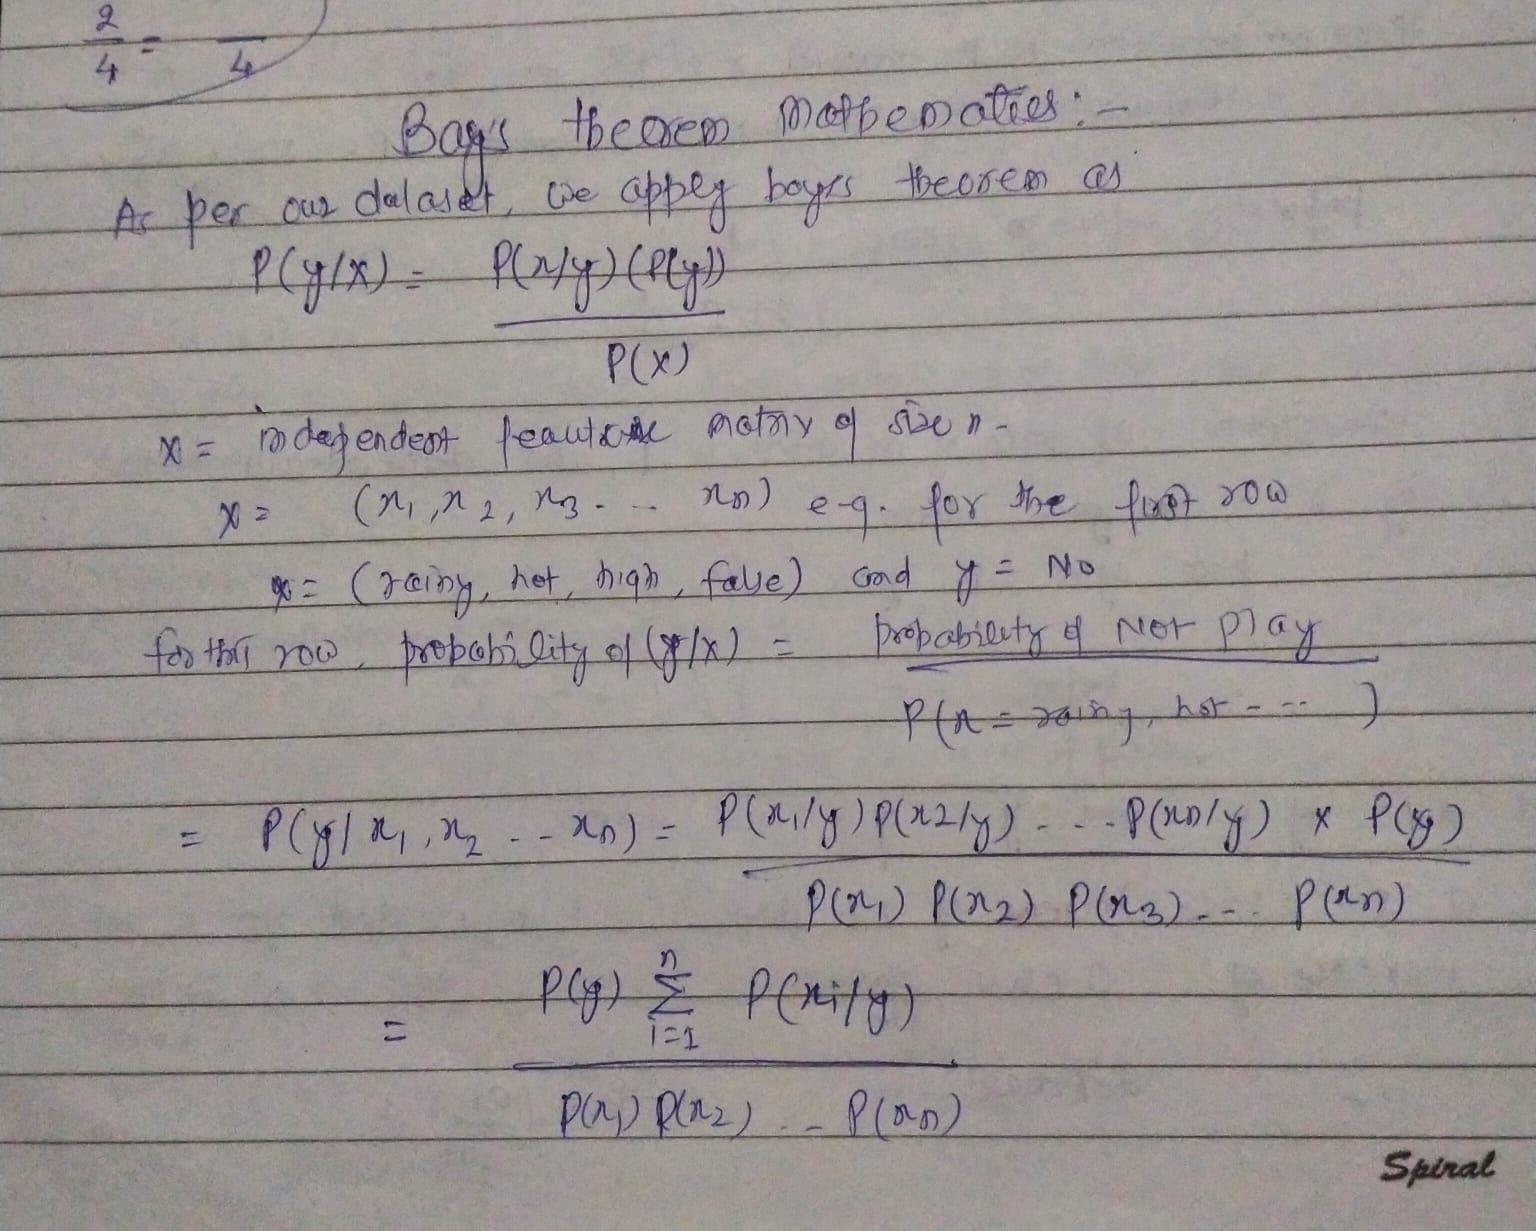 2/4 = /4
Bay's theorem Mathematics :-
As per our dataset, we apply bayes theorem as
P(y/x) = P(x/y) (P(y))
P(x)
x = independent feauture matrix of size n -
x = (x1, x2, x3 - .. xn) e-g. for the first row
x = (rainy, hot, high, false) and y = No
for this row, probability of (y/x) = probability of Not play
P(x = rainy, hot - -- )
= P(y/ x1, x2 - - xn) = P(x1/y) P(x2/y) - - - P(xn/y) x P(y)
P(x1) P(x2) P(x3) - - - P(xn)
= P(y) n Σ i=1 P(xi/y)
P(x1) P(x2) - - P(xn)
Spiral